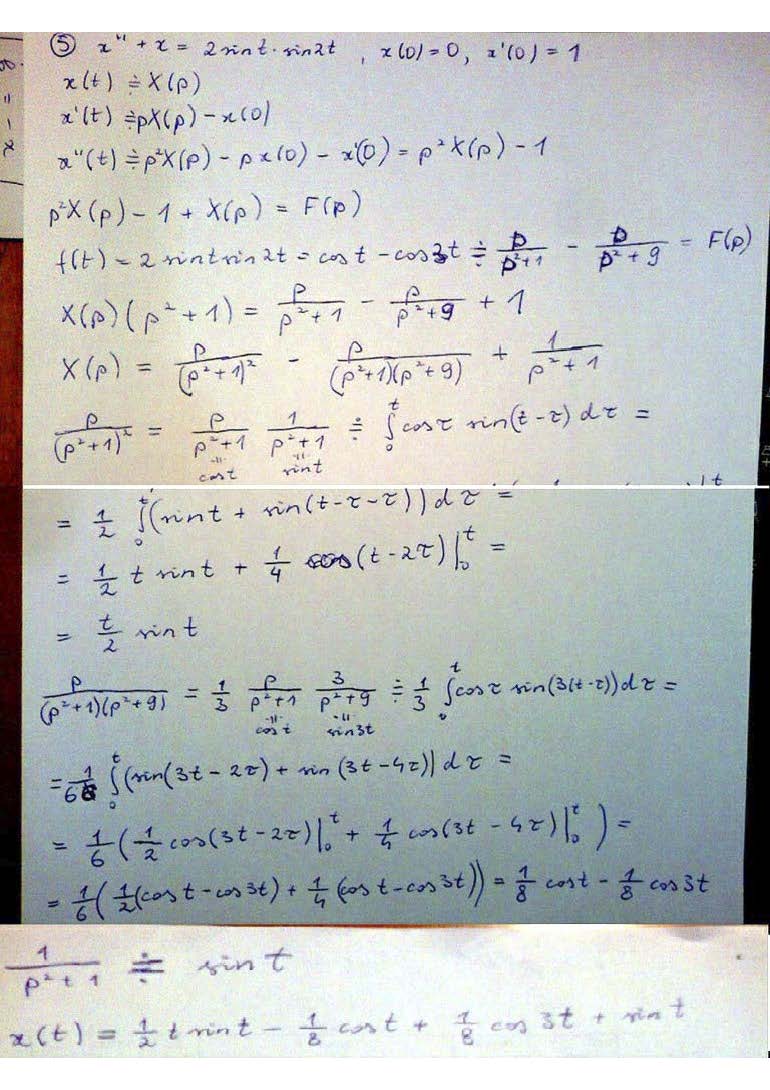 ⑤ x'' + x = 2 sin t · sin 2t , x(0) = 0, x'(0) = 1
x(t) ≑ X(p)
x'(t) ≑ pX(p) − x(0)
x''(t) ≑ p²X(p) − p x(0) − x'(0) = p² X(p) − 1
p²X(p) − 1 + X(p) = F(p)
f(t) = 2 sin t sin 2t = cos t − cos 3t ≑ p/(p²+1) − p/(p²+9) = F(p)
X(p)(p²+1) = p/(p²+1) − p/(p²+9) + 1
X(p) = p/(p²+1)² − p/((p²+1)(p²+9)) + 1/(p²+1)
p/(p²+1)² = p/(p²+1) 1/(p²+1) ≑ ∫₀ᵗ cos τ sin(t−τ) dτ =
cos t sin t
= 1/2 ∫₀ᵗ (sin t + sin(t−τ−τ)) dτ =
= 1/2 t sin t + 1/4 cos(t−2τ)|₀ᵗ =
= t/2 sin t
p/((p²+1)(p²+9)) = 1/3 p/(p²+1) 3/(p²+9) ≑ 1/3 ∫₀ᵗ cos τ sin(3(t−τ)) dτ =
cos t sin 3t
= 1/6 ∫₀ᵗ (sin(3t−2τ) + sin(3t−4τ)) dτ =
= 1/6 (1/2 cos(3t−2τ)|₀ᵗ + 1/4 cos(3t−4τ)|₀ᵗ) =
= 1/6 (1/2 (cos t − cos 3t) + 1/4 (cos t − cos 3t)) = 1/8 cos t − 1/8 cos 3t
1/(p²+1) ≑ sin t
x(t) = 1/2 t sin t − 1/8 cos t + 1/8 cos 3t + sin t